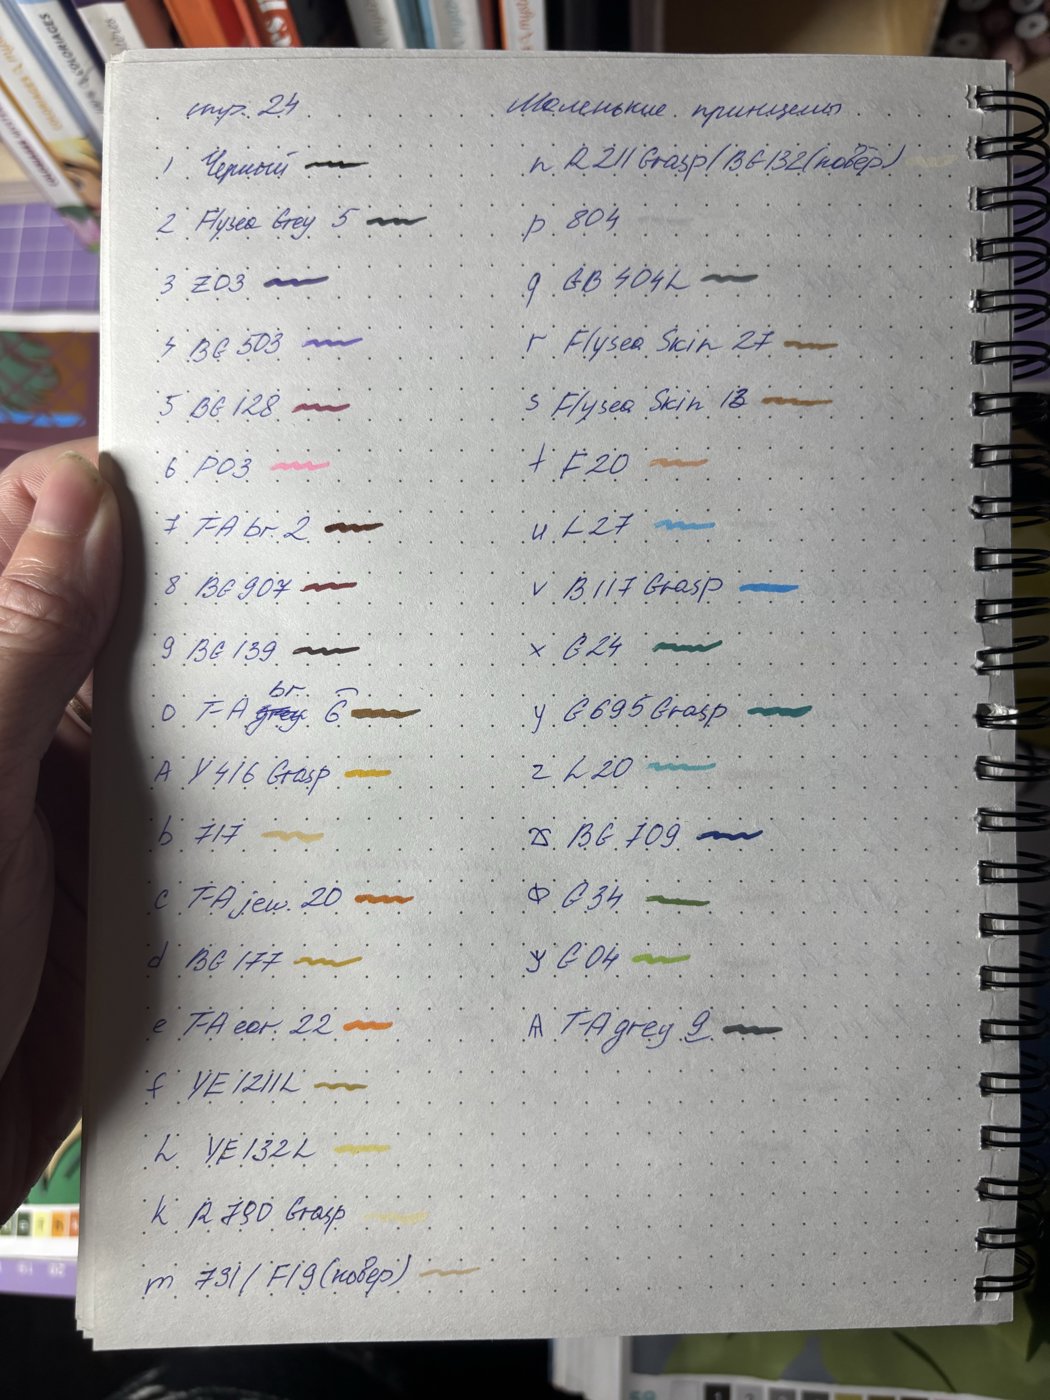 стр. 24
Маленькие принцессы
1 Черный
2 Flysea Grey 5
3 Z03
4 BG 503
5 BG 128
6 P03
7 T-A br. 2
8 BG 907
9 BG 139
0 T-A br. 6
A Y416 Grasp
b 717
c T-A jew. 20
d BG 177
e T-A cor. 22
f YE1211L
h YE132L
k R 790 Grasp
m 791 / F19 (повер)
n R 211 Grasp / BG132 (повер)
p 804
q GB 404L
r Flysea Skin 27
s Flysea Skin 13
t F20
u L27
v B117 Grasp
x G24
y G695 Grasp
z L20
BG 709
G34
G04
A T-A grey 9